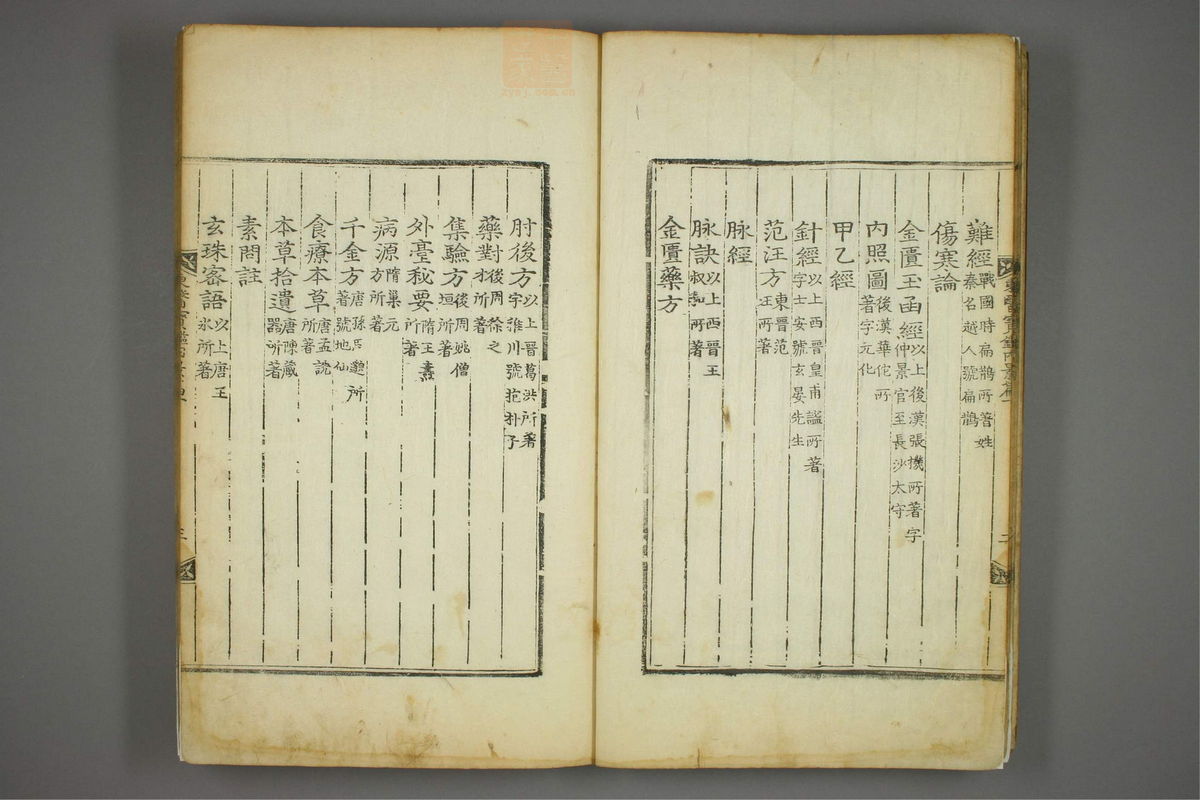 難經戰國時扁鵲所著姓
秦名越人號扁鵲
傷寒論
金匱玉函經以上後漢張機所著字
仲景官至長沙太守
內照圖後漢華佗所
著字元化
甲乙經
針經以上西晉皇甫謐所著
字士安號玄晏先生
范汪方東晉范
汪所著
脉經
脉訣以上西晉王
叔和所著
金匱藥方
肘後方以上晉葛洪所著
字雅川號抱朴子
藥對後周徐之
才所著
集驗方後周姚僧
垣所著
外臺秘要隋王燾
所著
病源隋巢元
方所著
千金方唐孫思邈所
著號地仙
食療本草唐孟詵
所著
本草拾遺唐陳藏
器所著
素問註
玄珠密語以上唐王
氷所著
三